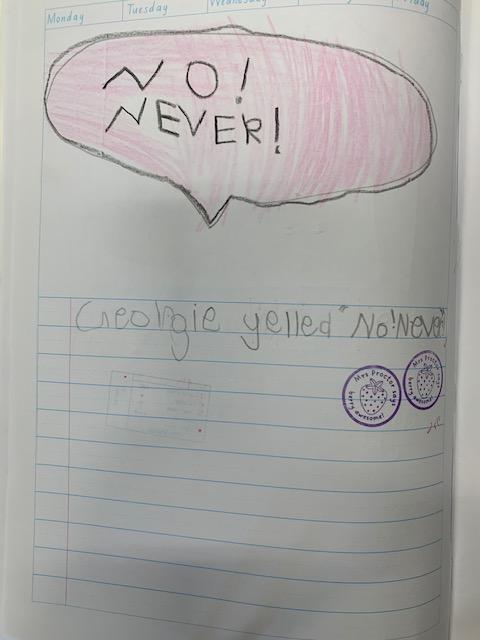 Monday Tuesday Wednesday Friday
NO!
NEVER!
Georgie yelled "No! Never"
Mrs Proctor says
berry awesome!
Mrs Proctor says
berry awesome!